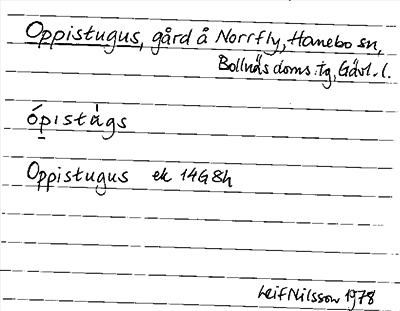 Oppistugus, gård å Norrfly, Hanebo sn,
Bollnäs doms.tg, Gävl. l.
ópistàgs
Oppistugus ek 14G8h
Leif Nilsson 1978